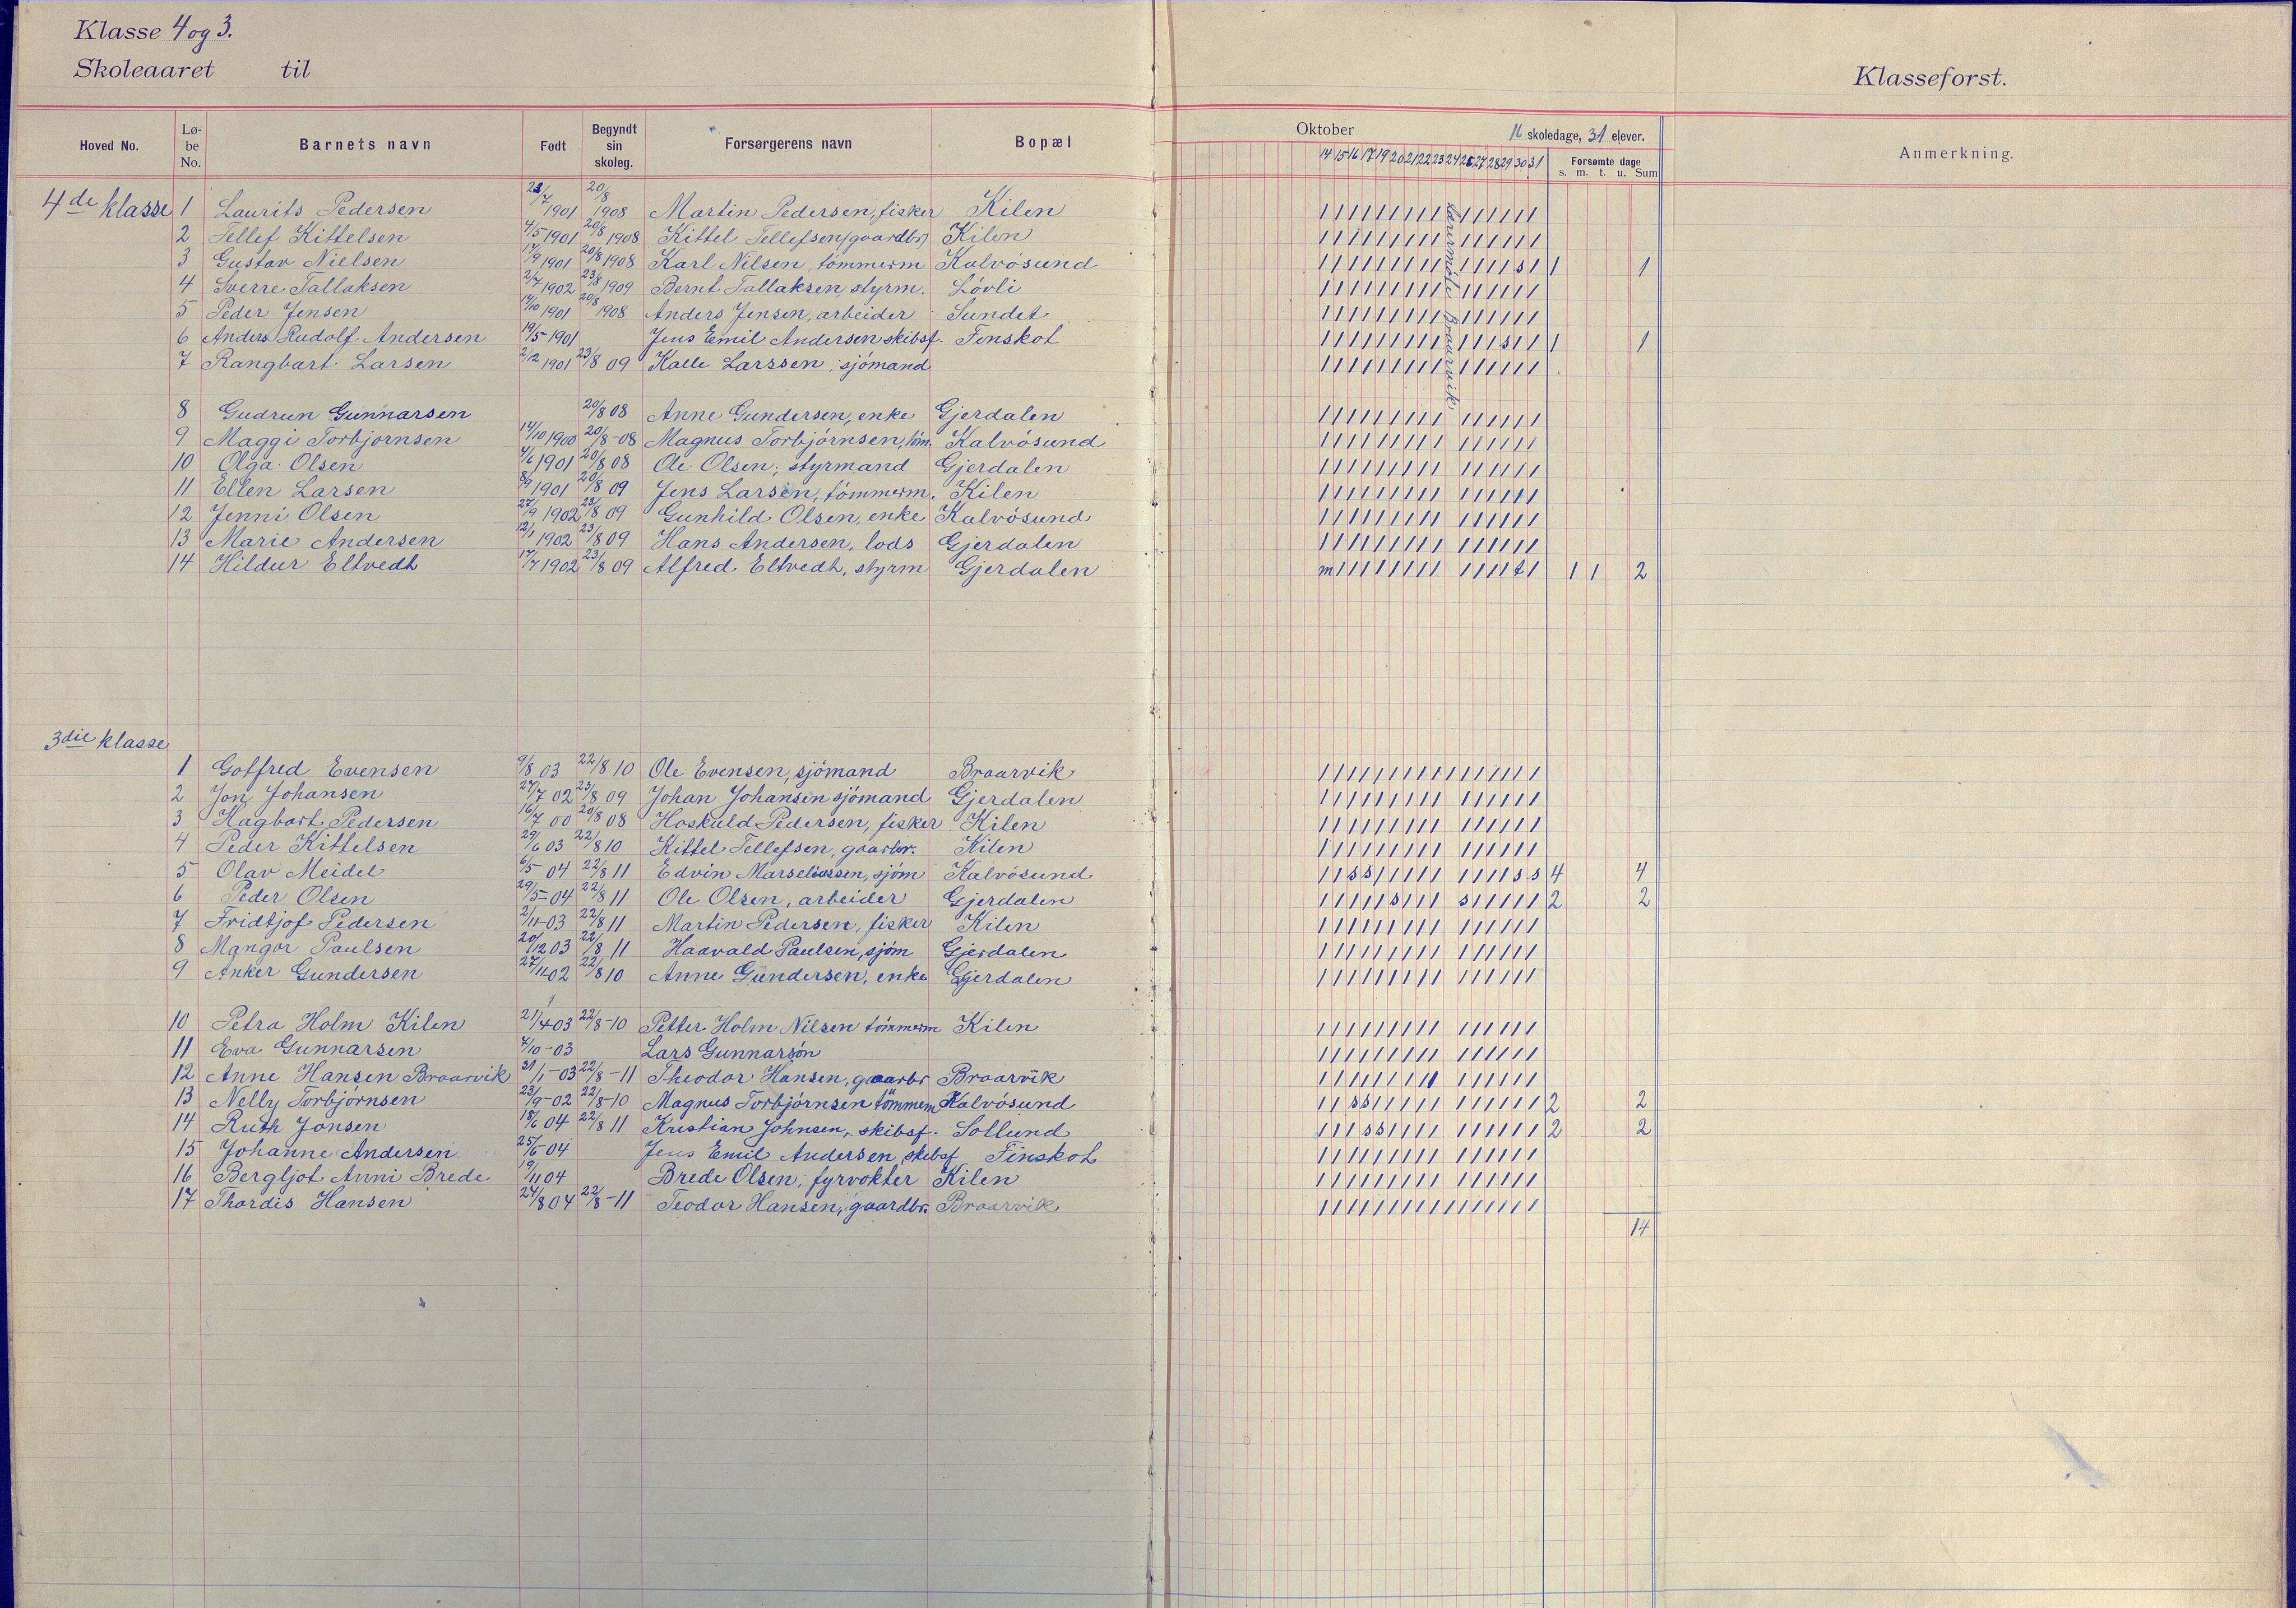 Klasse 4 og 3.
Skoleaaret til
Klasseforst.
Hoved No. Lø-be No. Barnets navn Født Begyndt sin skoleg. Forsørgerens navn Bopæl
Oktober 16 skoledage, 31 elever.
14 15 16 17 19 20 21 22 23 24 26 27 28 29 30 31 Forsømte dage s. m. t. u. Sum
Anmerkning.
4de klasse 1 Laurits Pedersen 23/7 1901 20/8 1908 Martin Pedersen, fisker Kilen
2 Tellef Kittelsen 4/5 1901 20/8 1908 Kittel Tellefsen, gaardbr Kilen
3 Gustav Nielsen 17/9 1901 20/8 1908 Karl Nilsen tömmerm Kalvösund 1 1
4 Sverre Tallaksen 2/7 1902 23/8 1909 Bernt Tallaksen, styrm. Lövli
5 Peder Jensen 14/10 1901 20/8 1908 Anders Jensen, arbeider Sundet
6 Anders Rudolf Andersen 19/5-1901 Jens Emil Andersen skibsf. Finskot 1 1
7 Rangbart Larsen 2/12 1901 23/8 09 Kalle Larssen, sjömand
Lærermöte Braarvik
8 Gudrun Gunnarsen 20/8 08 Anne Gundersen, enke Gjerdalen
9 Maggi Torbjörnsen 14/10 1900 20/8-08 Magnus Torbjörnsen, töm. Kalvösund
10 Olga Olsen 4/6 1901 20/8 08 Ole Olsen, styrmand Gjerdalen
11 Ellen Larsen 8/9 1901 20/8 09 Jens Larsen, tömmerm. Kilen
12 Jenni Olsen 27/9 1902 23/8 09 Gunhild Olsen, enke Kalvösund
13 Marie Andersen 12/1 1902 23/8 09 Hans Andersen, lods Gjerdalen
14 Hildur Eltvedt 17/7 1902 23/8 09 Alfred Eltvedt, styrm Gjerdalen 1 1 2
3die klasse
1 Gotfred Evensen 9/8 03 22/8 10 Ole Evensen, sjömand Braarvik
2 Jon Johansen 27/7 02 23/8 09 Johan Johansen sjömand Gjerdalen
3 Hagbart Pedersen 16/7 00 20/8 08 Hoskuld Pedersen, fisker Kilen
4 Peder Kittelsen 29/6 03 22/8 10 Kittel Tellefsen, gaarbr. Kilen
5 Olav Meidel 6/5 04 22/8 11 Edvin Marseliussen, sjöm Kalvösund 4 4
6 Peder Olsen 29/5-04 22/8 11 Ole Olsen, arbeider Gjerdalen 2 2
7 Fridtjof Pedersen 2/11-03 22/8 11 Martin Pedersen, fisker Kilen
8 Mangor Paulsen 20/12 03 22/8 11 Haavald Paulsen, sjöm Gjerdalen
9 Anker Gundersen 27/11 02 22/8 10 Anne Gundersen, enke Gjerdalen
10 Petra Holm Kilen 21/4 03 22/8-10 Petter Holm Nilsen tömmerm Kilen
11 Eva Gunnarsen 7/10-03 Lars Gunnarsön
12 Anne Hansen Braarvik 31/1-03 22/8-11 Theodor Hansen, gaarbr Braarvik
13 Nelly Torbjörnsen 23/9-02 22/8-10 Magnus Torbjörnsen tömmerm Kalvösund 2 2
14 Ruth Jonsen 18/6 04 22/8 11 Kristian Johnsen, skibsf. Sollund 2 2
15 Johanne Andersen 25/6-04 Jens Emil Andersen, skibsf Finskot
16 Bergljot Anni Brede 19/11 04 Brede Olsen, fyrvokter Kilen
17 Thordis Hansen 24/8 04 22/8-11 Teodor Hansen, gaardbr. Braarvik
14